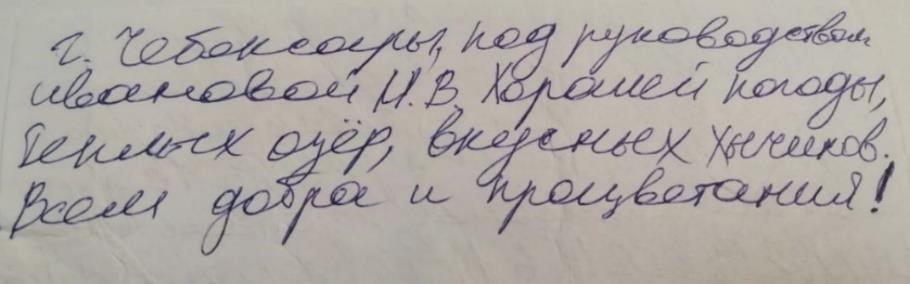 г. Чебоксары, под руководством
Ивановой Н.В. Хорошей погоды,
тёплых озёр, вкусных хычинов.
Всем добра и процветания!